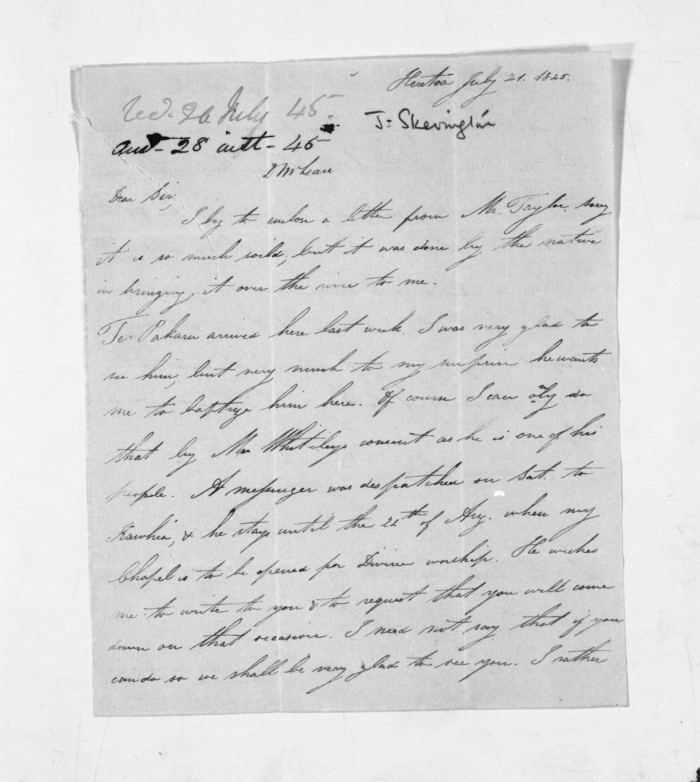 Heretoa July 21. 1845.
recd. 26 July 45
J: Skevington
ansd - 28 inst - 45
D McLean
Dear Sir,
I beg to enclose a letter from Mr. Taylor. sorry
it is so much soild, but it was done by the native
in bringing it over the river to me.
Te Pakaru arrived here last week. I was very glad to
see him, but very much to my surprise he wants
me to baptize him here. Of course I can only do
that by Mr Whiteleys consent as he is one of his
people. A messenger was despatched on Sat. to
Kawhia, & he stays until the 22th of Aug. when my
Chapel is to be opened for Divine worship. He wishes
me to write to you & to request that you will come
down on that occasion. I need not say that if you
can do so we shall be very glad to see you. I rather